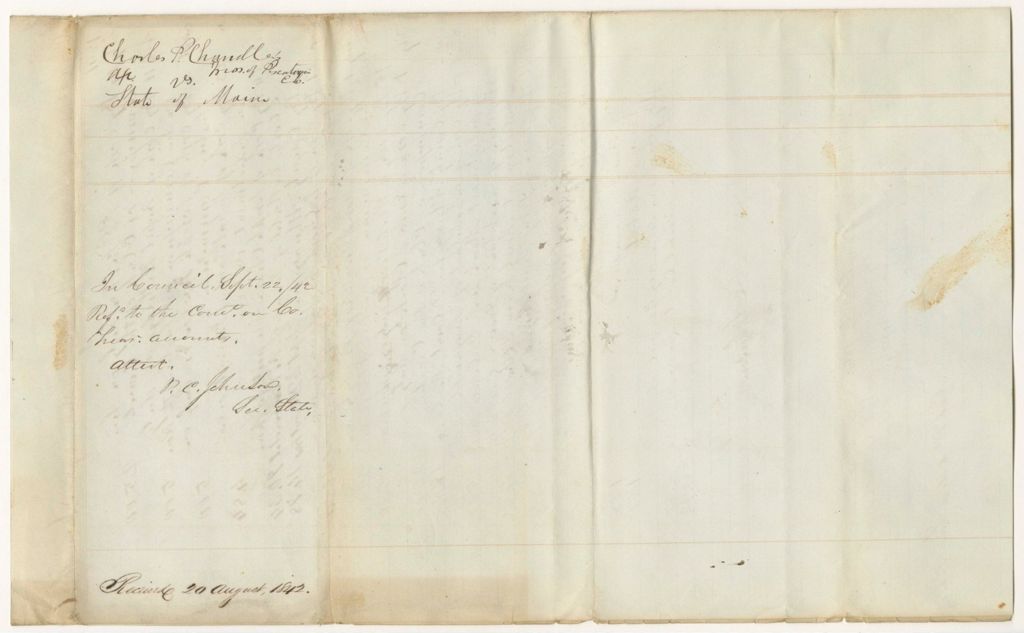 Charles P. Chandler
Treas. of Piscataquis Co.
vs.
State of Maine
In Council, Sept. 22, /42
Ref.d to the Com.e on Co.
Treas. accounts.
attest.
P. C. Johnson,
Sec. State,
Received 20 August, 1842.